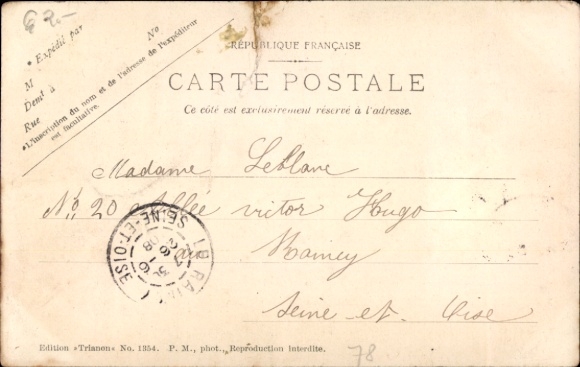 G 2.-
• Expédié par
No
M
Demt à
Rue
•L'inscription du nom et de l'adresse de l'expéditeur
est facultative.
RÉPUBLIQUE FRANÇAISE
CARTE POSTALE
Ce côté est exclusivement réservé à l'adresse.
Madame Leblanc
No. 20 Allée victor Hugo
au Raincy
Seine-et-Oise
LE RAINCY
SEINE-ET-OISE
Edition »Trianon« No. 1354. P. M., phot., Reproduction interdite.
78